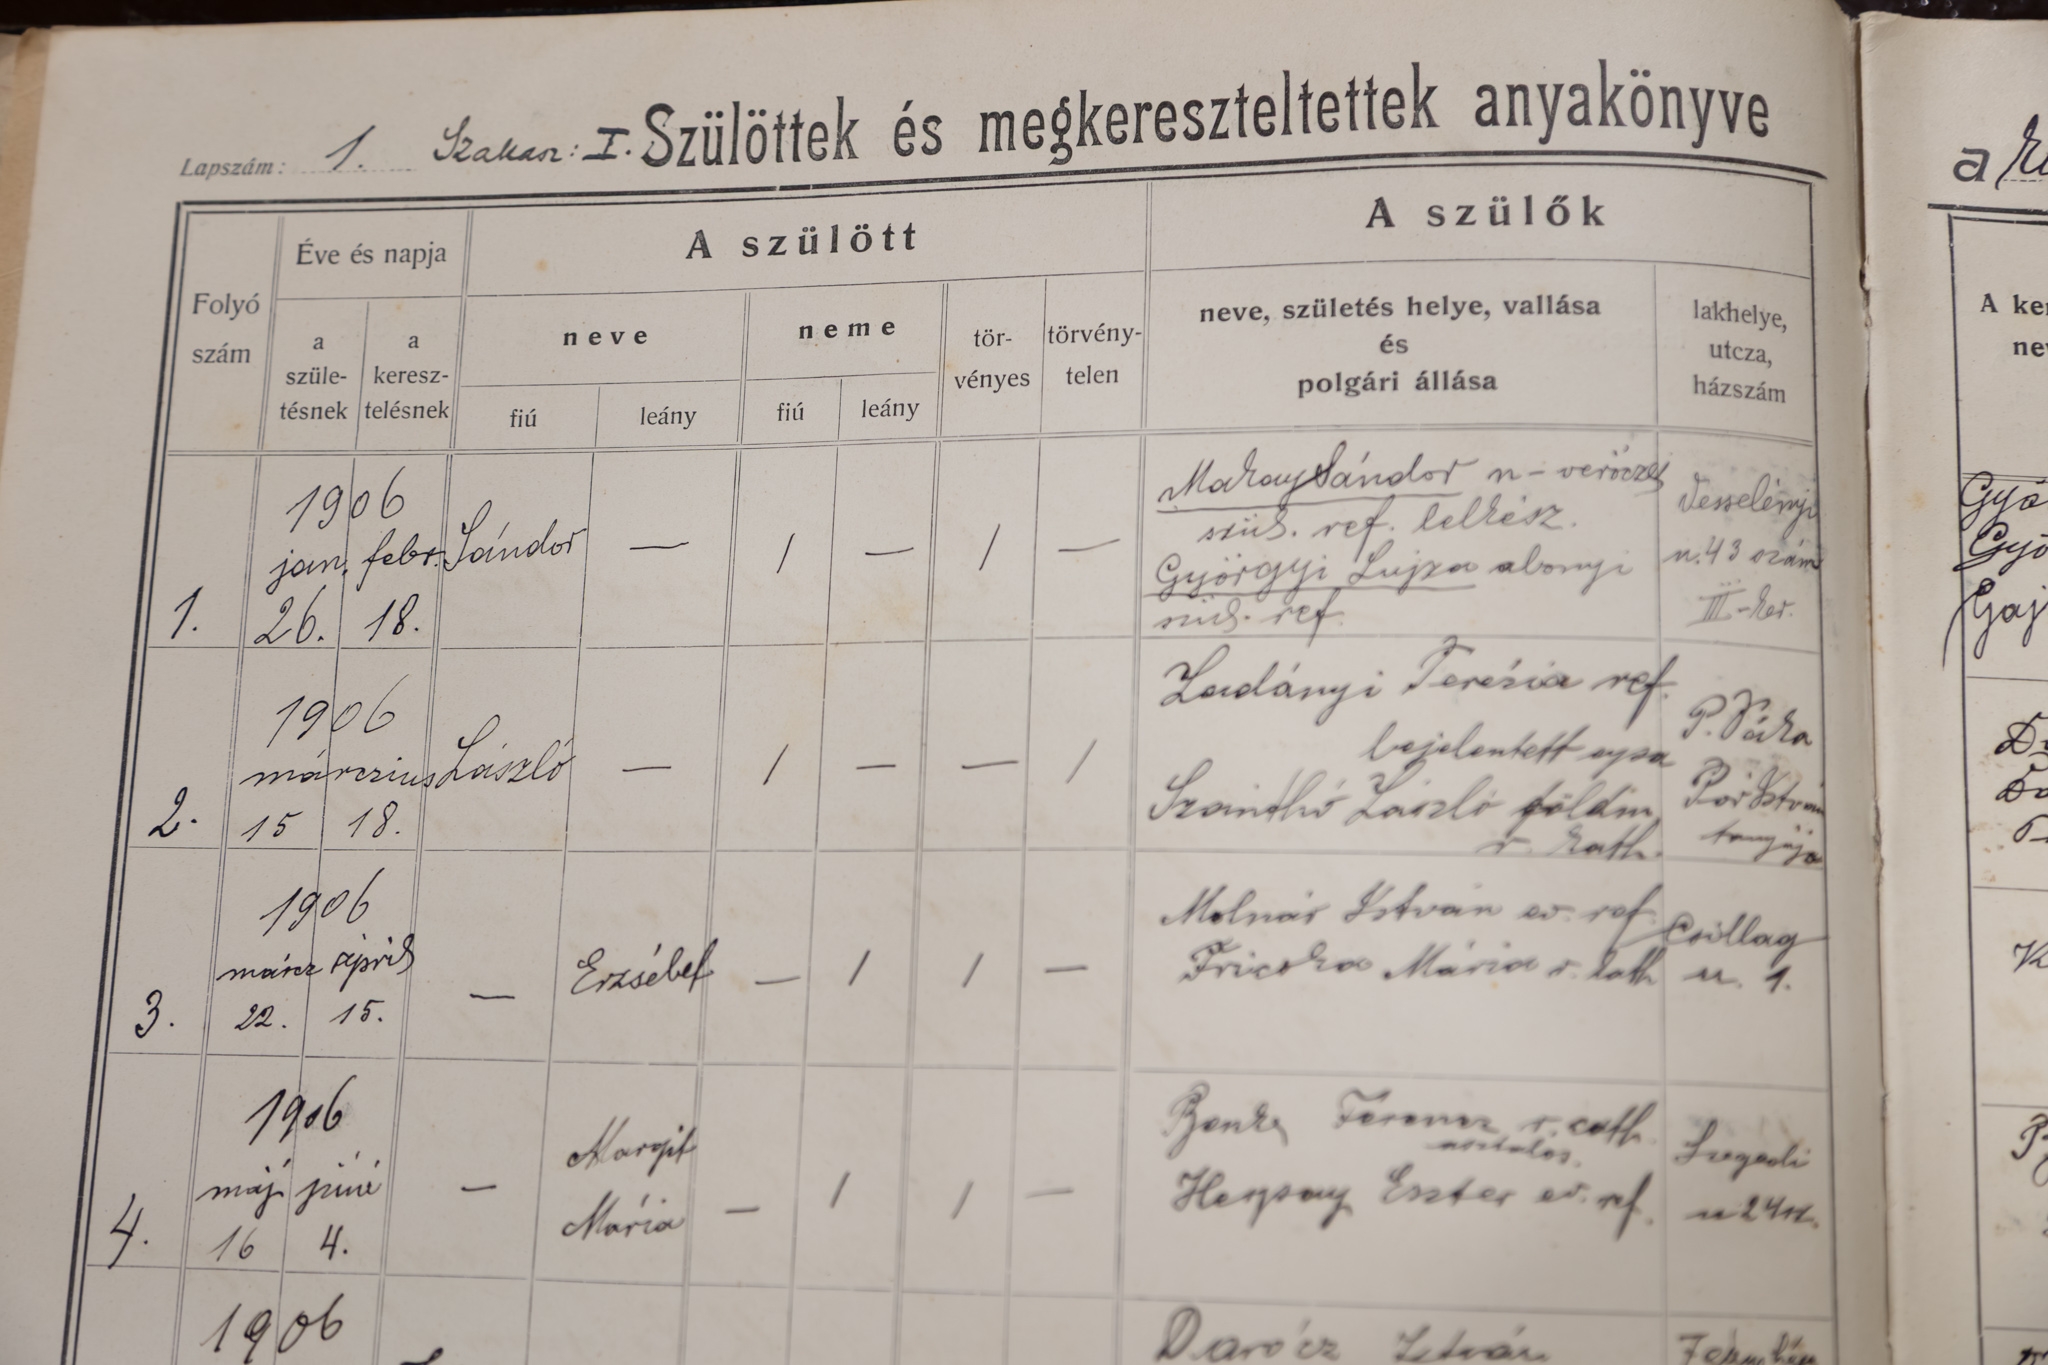 Lapszám: 1. Szakasz: I. Szülöttek és megkereszteltettek anyakönyve
Folyó szám
Éve és napja
a szüle-tésnek
a keresz-telésnek
A szülött
neve
fiú
leány
neme
fiú
leány
tör-vényes
törvény-telen
A szülők
neve, születés helye, vallása
és
polgári állása
lakhelye,
utcza,
házszám
1.
1906
jan. febr.
26. 18.
Sándor — / — / —
Makay Sándor n-verőczei
szül. ref. lelkész.
Györgyi Lujza abonyi
szül. ref.
Vesselényi
u. 43 szám
III-ker.
2.
1906
márczius
15 18.
László — / — — /
Ladányi Terézia ref.
bejelentett apa
Szánthó László földm.
r. kath.
P. Póka
Pór István
tanyája
3.
1906
márcz ápril
22. 15.
— Erzsébet — / / —
Molnár István ev. ref.
Fricska Mária r. kath
Csillag
u. 1.
4.
1906
máj júni
16 4.
— Margit
Mária — / / —
Ferencz r. cath.
asztalos.
Eszter ev. ref.
Szegedi
u 24 sz.
1906
Darócz István
a
A ke
ne